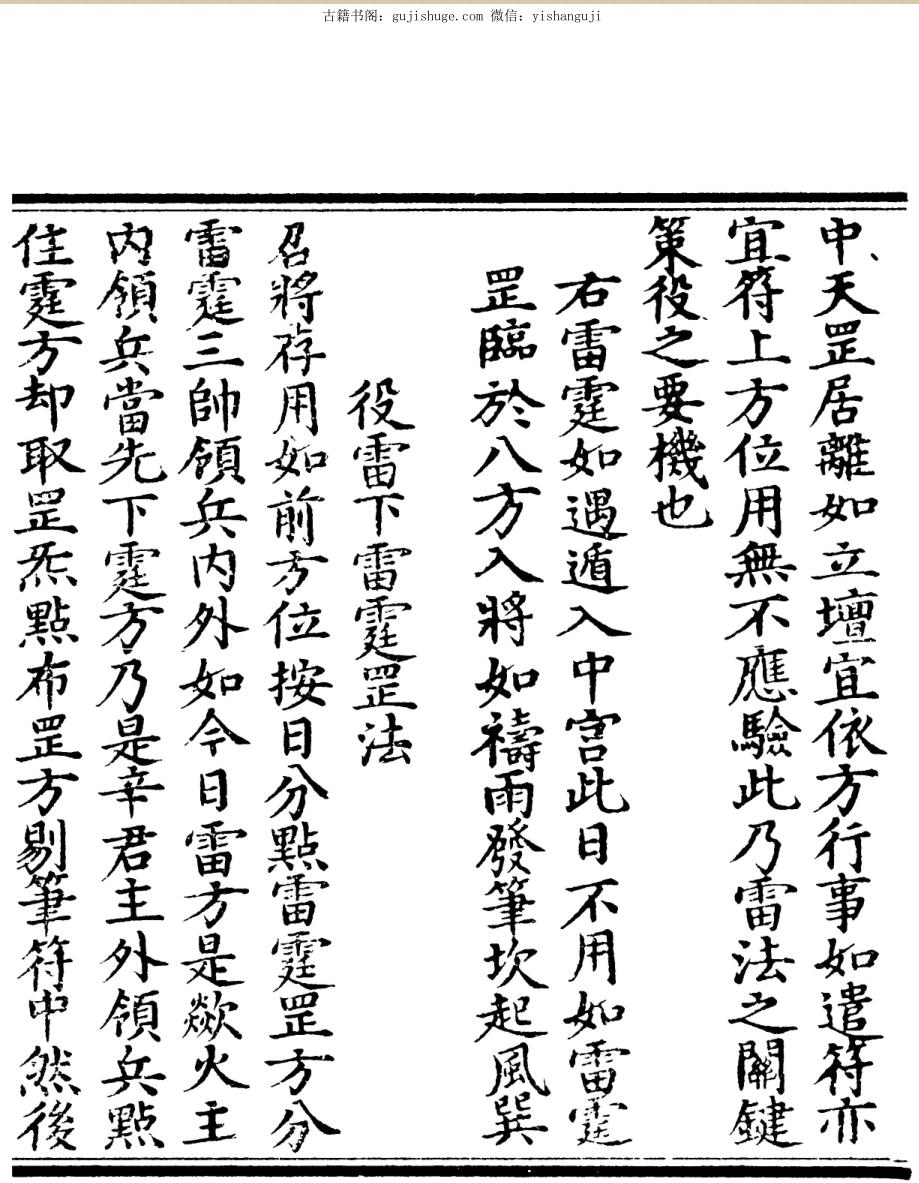 古籍书阁：gujishuge.com 微信：yishanguji
中、天罡居離如立壇宜依方行事如遣符亦
宜符上方位用無不應驗此乃雷法之關鍵
策役之要機也
右雷霆如遇遁入中宫此日不用如雷霆
罡臨於八方入將如禱雨發筆坎起風巽
役雷下雷霆罡法
召將存用如前方位按日分點雷霆罡方分
雷霆三帥領兵内外如今日雷方是歘火主
内領兵當先下霆方乃是辛君主外領兵點
住霆方却取罡炁點布罡方剔筆符中然後